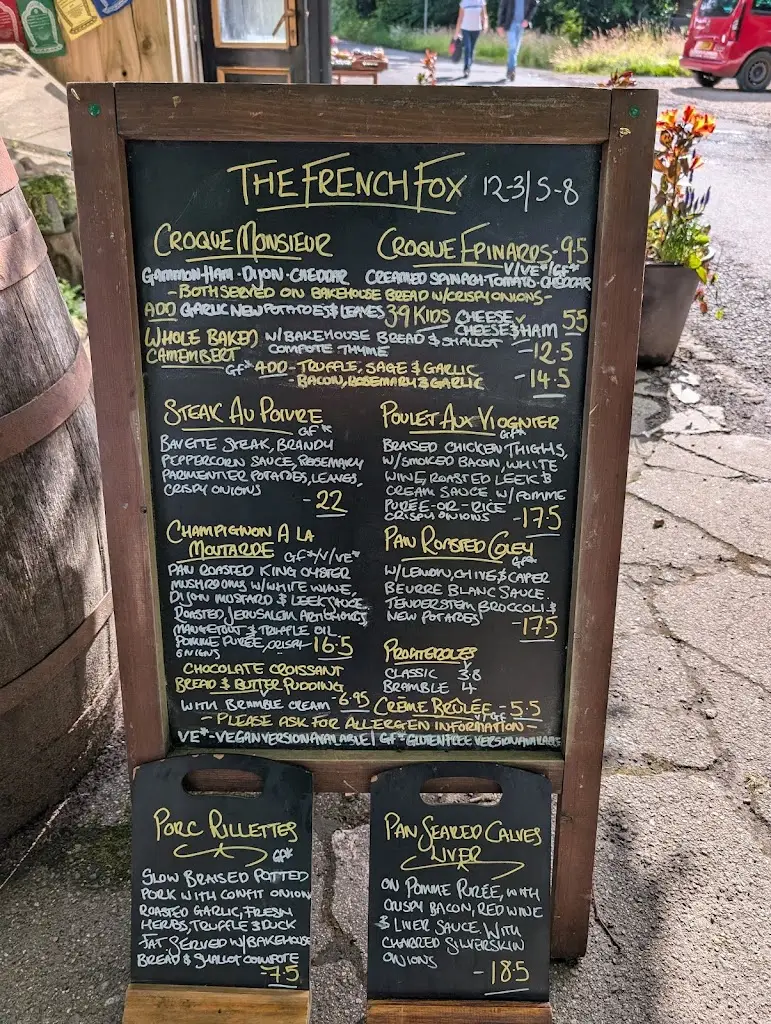 THE FRENCH FOX 12-3/5-8
CROQUE MONSIEUR
GAMMON HAM · DIJON · CHEDDAR
CROQUE EPINARDS - 9.5
V/VE*/GF*
CREAMED SPINACH · TOMATO · CHEDDAR
- BOTH SERVED ON BAKEHOUSE BREAD W/ CRISPY ONIONS -
ADD GARLIC NEW POTATOES & LEAVES 3.9
KIDS CHEESE
CHEESE & HAM 5.5
WHOLE BAKED CAMEMBERT
W/ BAKEHOUSE BREAD & SHALLOT
COMPOTE THYME - 12.5
GF* ADD - TRUFFLE, SAGE & GARLIC
- BACON, ROSEMARY & GARLIC - 14.5
STEAK AU POIVRE
GF*
BAVETTE STEAK, BRANDY
PEPPERCORN SAUCE, ROSEMARY
PARMENTIER POTATOES, LEAVES,
CRISPY ONIONS
- 22
POULET AUX VIOGNIER
GF*
BRAISED CHICKEN THIGHS,
W/ SMOKED BACON, WHITE
WINE, ROASTED LEEK &
CREAM SAUCE W/ POMME
PURÉE - OR - RICE
CRISPY ONIONS - 17.5
CHAMPIGNON A LA
MOUTARDE GF*/V/VE*
PAN ROASTED KING OYSTER
MUSHROOMS W/ WHITE WINE,
DIJON MUSTARD & LEEK SAUCE,
ROASTED JERUSALEM ARTICHOKES,
MANGETOUT & TRUFFLE OIL
POMME PURÉE, CRISPY
ONIONS 16.5
PAN ROASTED COLEY
GF*
W/ LEMON, CHIVE & CAPER
BEURRE BLANC SAUCE
TENDERSTEM BROCCOLI &
NEW POTATOES - 17.5
CHOCOLATE CROISSANT
BREAD & BUTTER PUDDING
V
WITH BRAMBLE CREAM - 6.95
PROFITEROLES
V
CLASSIC 3.8
BRAMBLE 4
CRÈME BRÛLÉE - 5.5
V/GF
- PLEASE ASK FOR ALLERGEN INFORMATION -
VE* - VEGAN VERSION AVAILABLE | GF* GLUTEN FREE VERSION AVAILABLE
PORC RILLETTES
GF*
SLOW BRAISED POTTED
PORK WITH CONFIT ONION
ROASTED GARLIC, FRESH
HERBS, TRUFFLE & DUCK
FAT SERVED W/ BAKEHOUSE
BREAD & SHALLOT COMPOTE
- 7.5
PAN SEARED CALVES
LIVER
ON POMME PURÉE, WITH
CRISPY BACON, RED WINE
& LIVER SAUCE. WITH
CHARRED SILVERSKIN
ONIONS
- 18.5